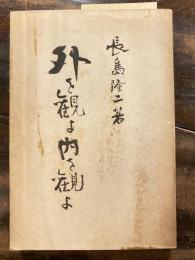 長島隆二著
外を観よ内を観よ